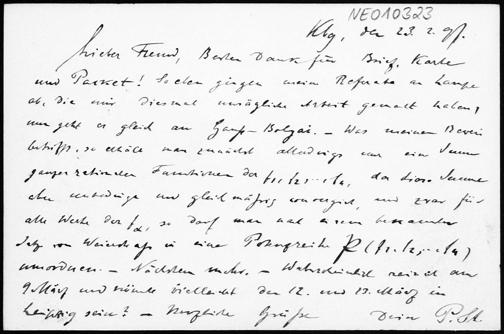 NEO10323
Klbg, den 23. 2. 97.
Lieber Freund, Besten Dank für Brief, Karte
und Packet! Soeben gingen meine Referate an Lampe
ab, die mir diesmal unsägliche Arbeit gemacht haben,
nun geht es gleich an Gauss-Bolyai. — Was meinen Beweis
betrifft, so erhält man zunächst allerdings nur eine Summe
ganzer rationaler Funktionen der f₁, f₂, ... fₙ, da diese Summe
aber unbedingt und gleichmässig convergirt, und zwar für
alle Werthe der fα, so darf man nach einem bekannten
Satze von Weierstrass in eine Potenzreihe P(f₁, f₂, ... fₙ)
umordnen. — Nächstens mehr. — Wahrscheinlich reise ich am
9 März und könnte vielleicht den 12. und 13. März in
Leipzig sein? — Herzliche Grüße Dein P. St.